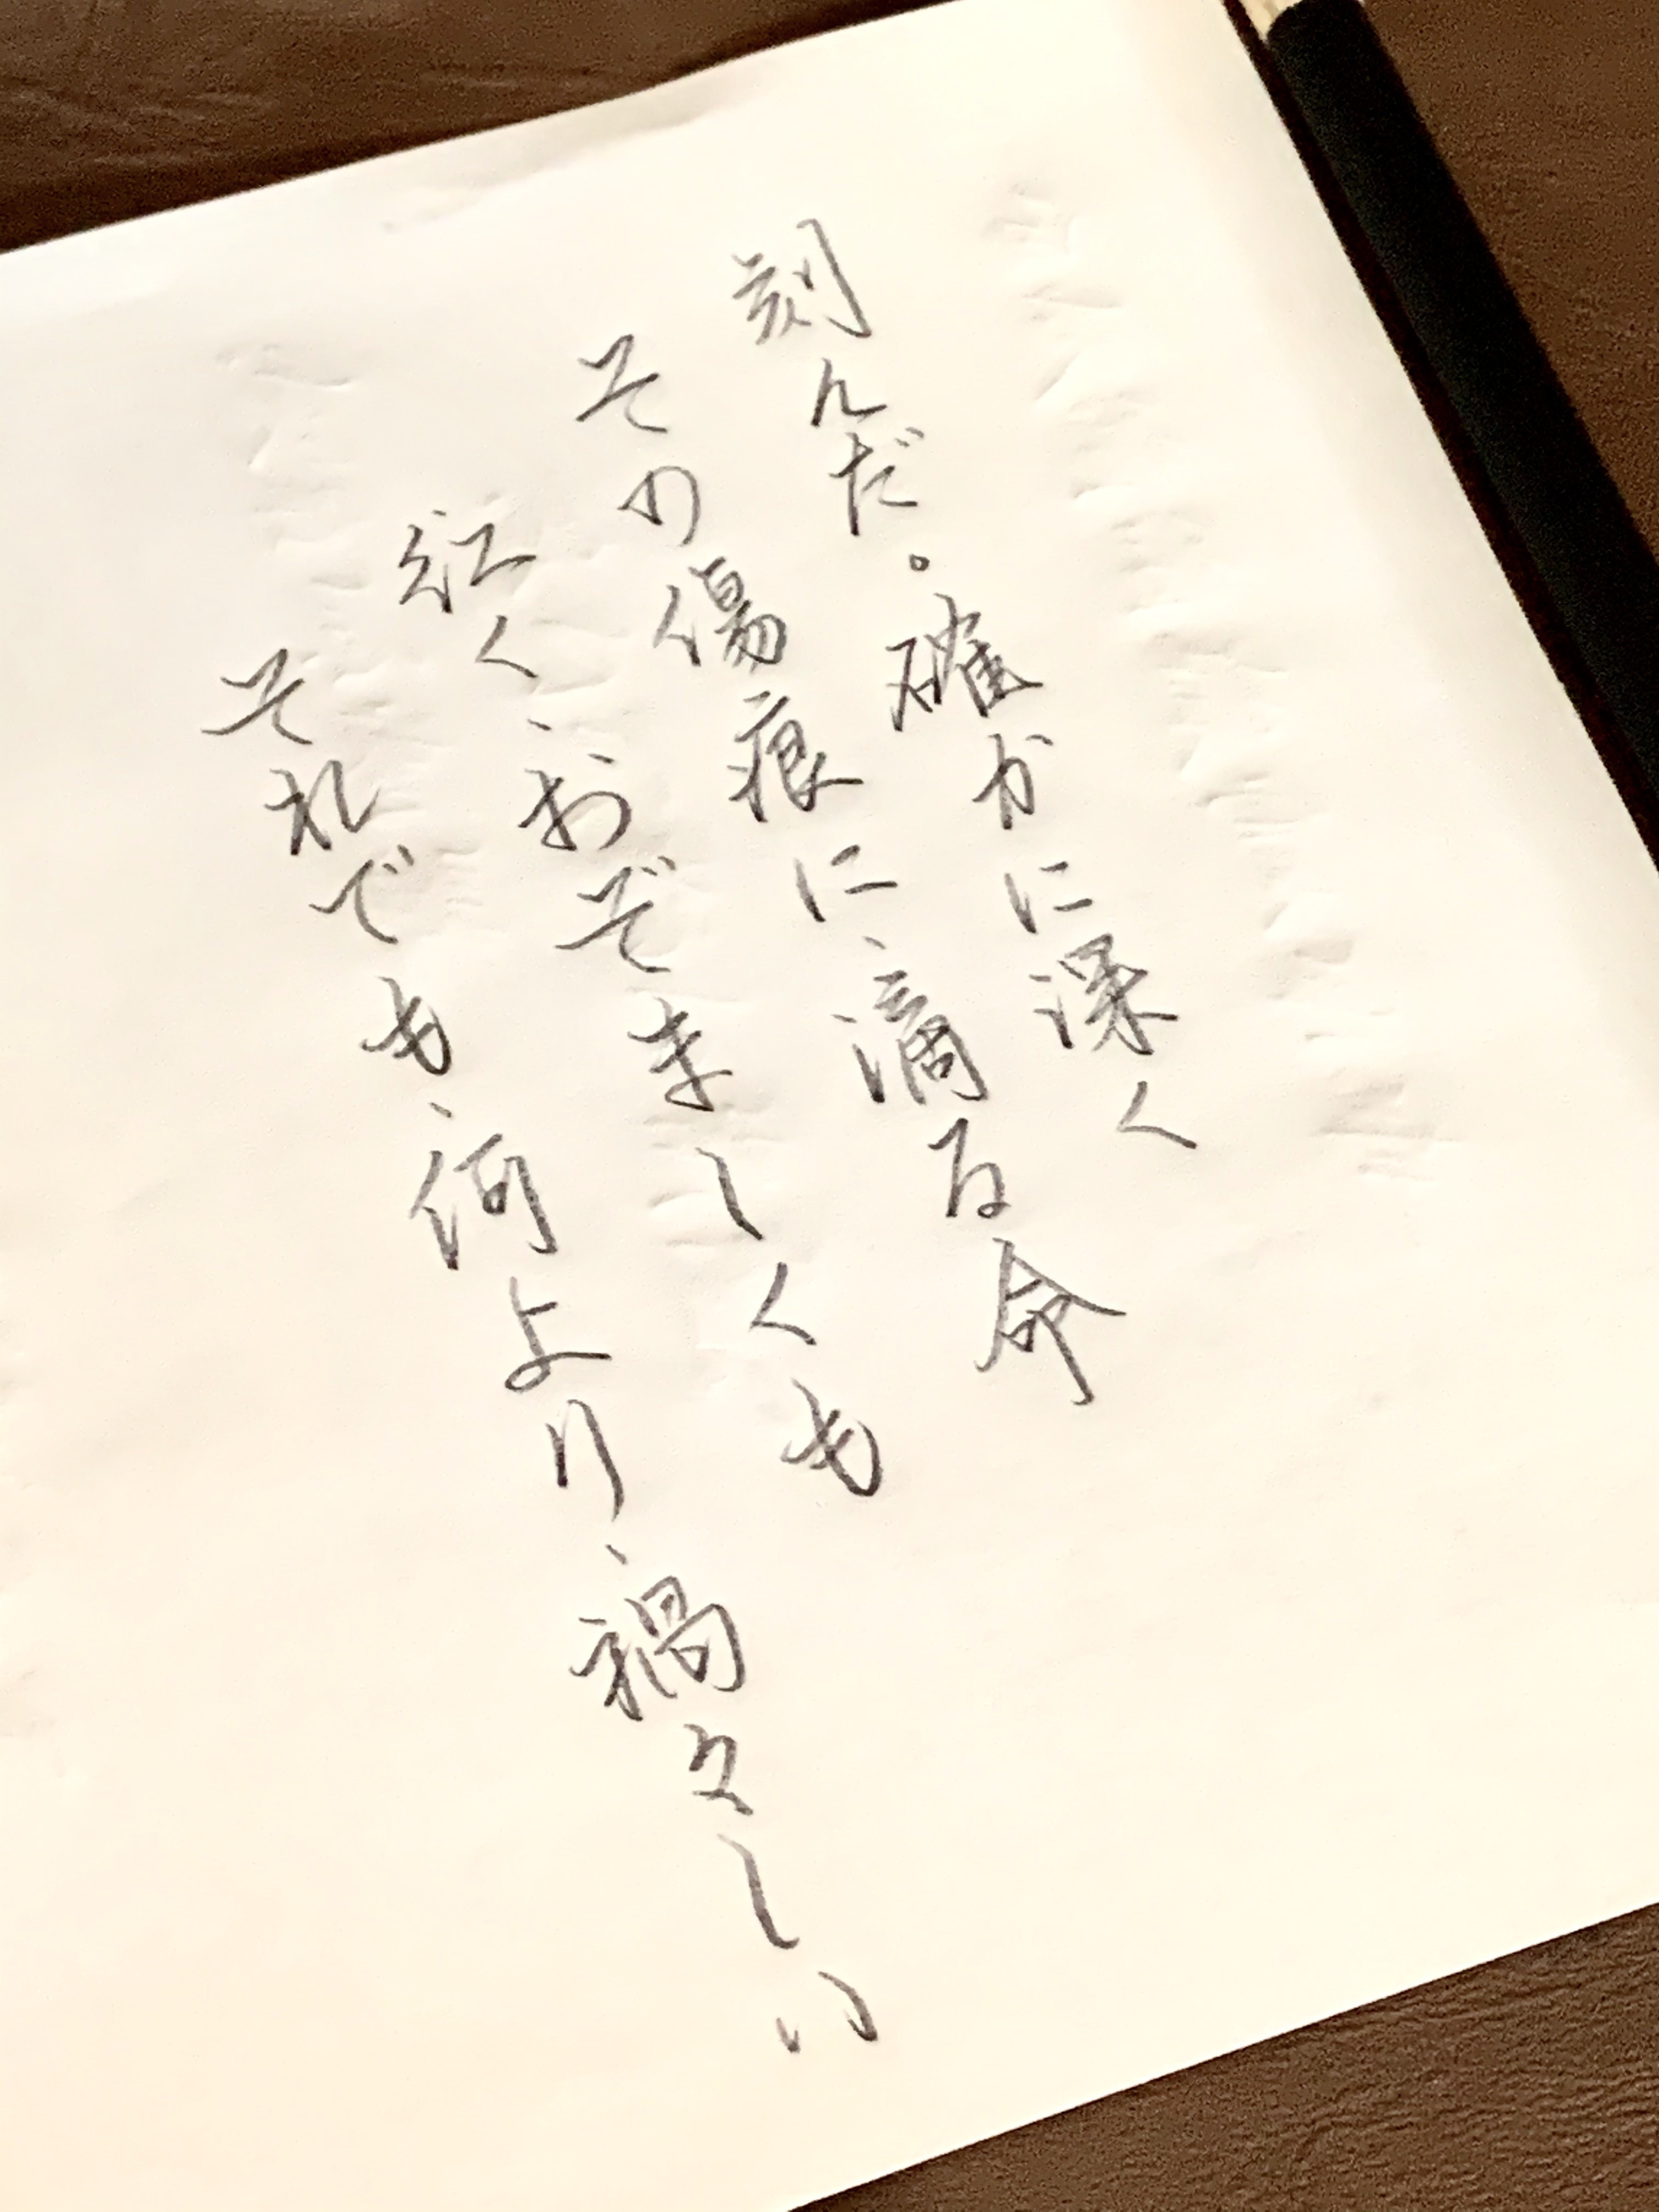 刻んだ。確かに深く
その傷痕に、滴る命
紅く、おぞましくも
それでも、何より、禍々しい